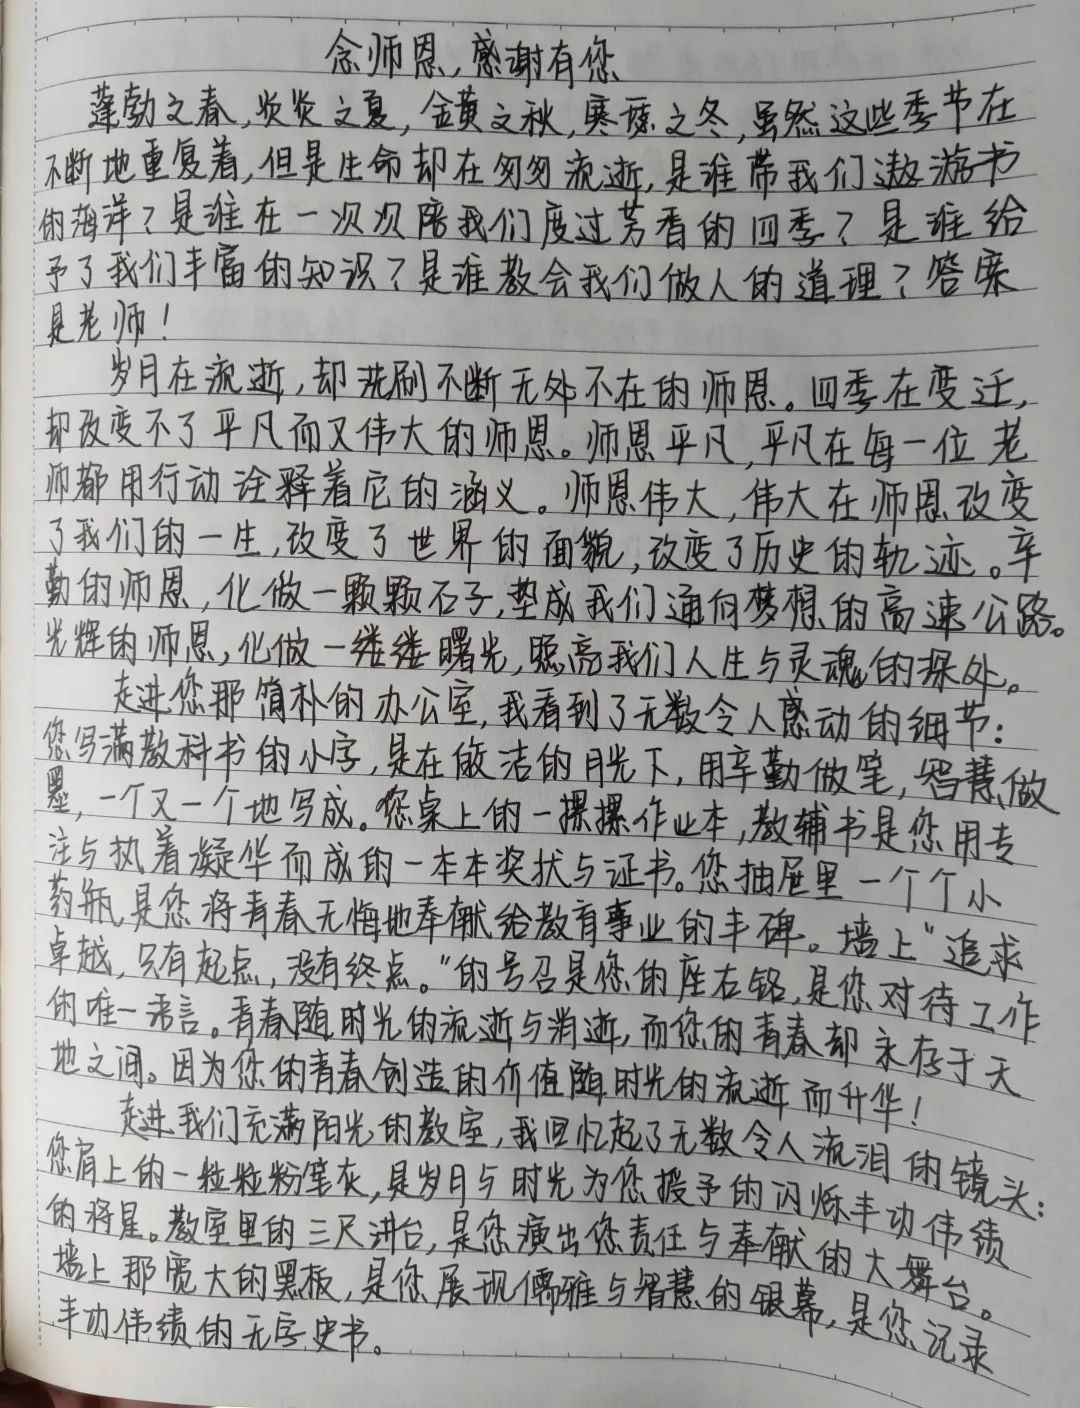 念师恩,感谢有您
蓬勃之春,炎炎之夏,金黄之秋,寒瑟之冬,虽然这些季节在
不断地重复着,但是生命却在匆匆流逝,是谁带我们遨游书
的海洋?是谁在一次次陪我们度过芳香的四季?是谁给
予了我们丰富的知识?是谁教会我们做人的道理?答案
是老师!
岁月在流逝,却洗刷不断无处不在的师恩。四季在变迁,
却改变不了平凡而又伟大的师恩。师恩平凡,平凡在每一位老
师都用行动诠释着它的涵义。师恩伟大,伟大在师恩改变
了我们的一生,改变了世界的面貌,改变了历史的轨迹。辛
勤的师恩,化做一颗颗石子,垫成我们通向梦想的高速公路。
光辉的师恩,化做一缕缕曙光,照亮我们人生与灵魂的深处。
走进您那简朴的办公室,我看到了无数令人感动的细节:
您写满教科书的小字,是在皎洁的月光下,用辛勤做笔,智慧做
墨,一个又一个地写成。您桌上的一摞摞作业本,教辅书是您用专
注与执着凝华而成的一本本奖状与证书。您抽屉里一个个小
药瓶,是您将青春无悔地奉献给教育事业的丰碑。墙上"追求
卓越,只有起点,没有终点。"的号召是您的座右铭,是您对待工作
的唯一誓言。青春随时光的流逝与消逝,而您的青春却永存于天
地之间。因为您的青春创造的价值随时光的流逝而升华!
走进我们充满阳光的教室,我回忆起了无数令人流泪的镜头:
您肩上的一粒粒粉笔灰,是岁月与时光为您授予的闪烁丰功伟绩
的将星。教室里的三尺讲台,是您演出您责任与奉献的大舞台。
墙上那宽大的黑板,是您展现儒雅与智慧的银幕,是您记录
丰功伟绩的无字史书。